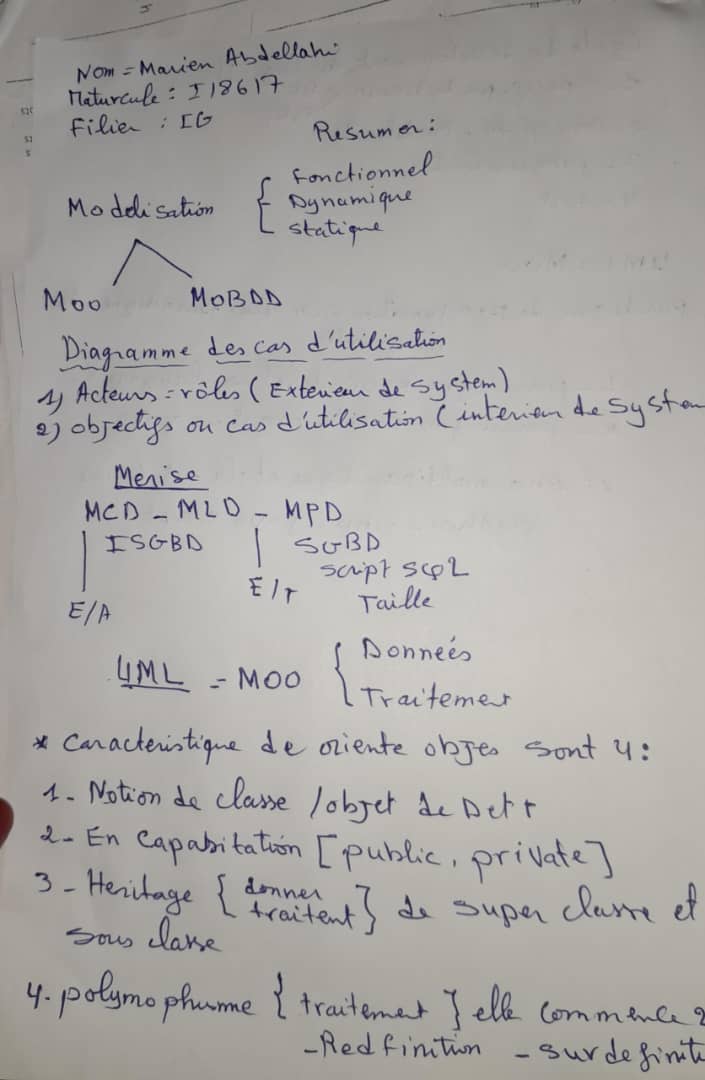 Nom = Marien Abdellahi
Maturcule : I18617
Filier : IG
Resumer :
Modelisation { Fonctionnel
Dynamique
Statique
Moo MOBDD
Diagramme des cas d'utilisation
1) Acteurs = rôles (Exterieur de System)
2) objectifs ou cas d'utilisation (interieur de System
Merise
MCD - MLD - MPD
ISGBD SGBD
script SQL
E/A E/r Taille
UML = MOO { Donneés
Traitement
* Caracteristique de oriente objes sont 4 :
1 - Notion de classe / objet de D et t
2 - En Capabitation [public, private]
3 - Heritage { donner
traitent } de super classe et
Sous classe
4. polymophumme { traitement } elle commence 2
- Redfinition - surdefiniti